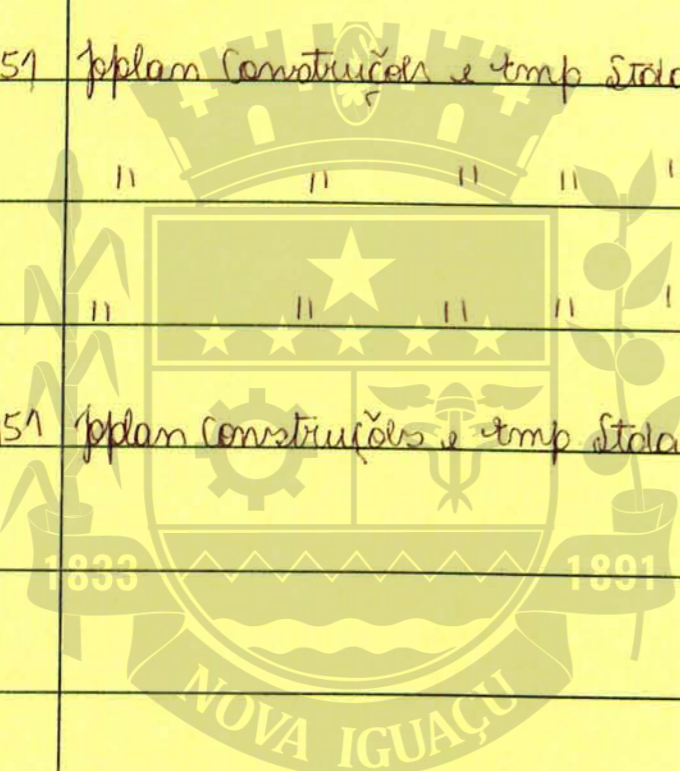 51 Joplan Construções e Emp Ltda
" " " " "
" " " " "
51 Joplan Construções e Emp Ltda
1833 1891
NOVA IGUAÇU